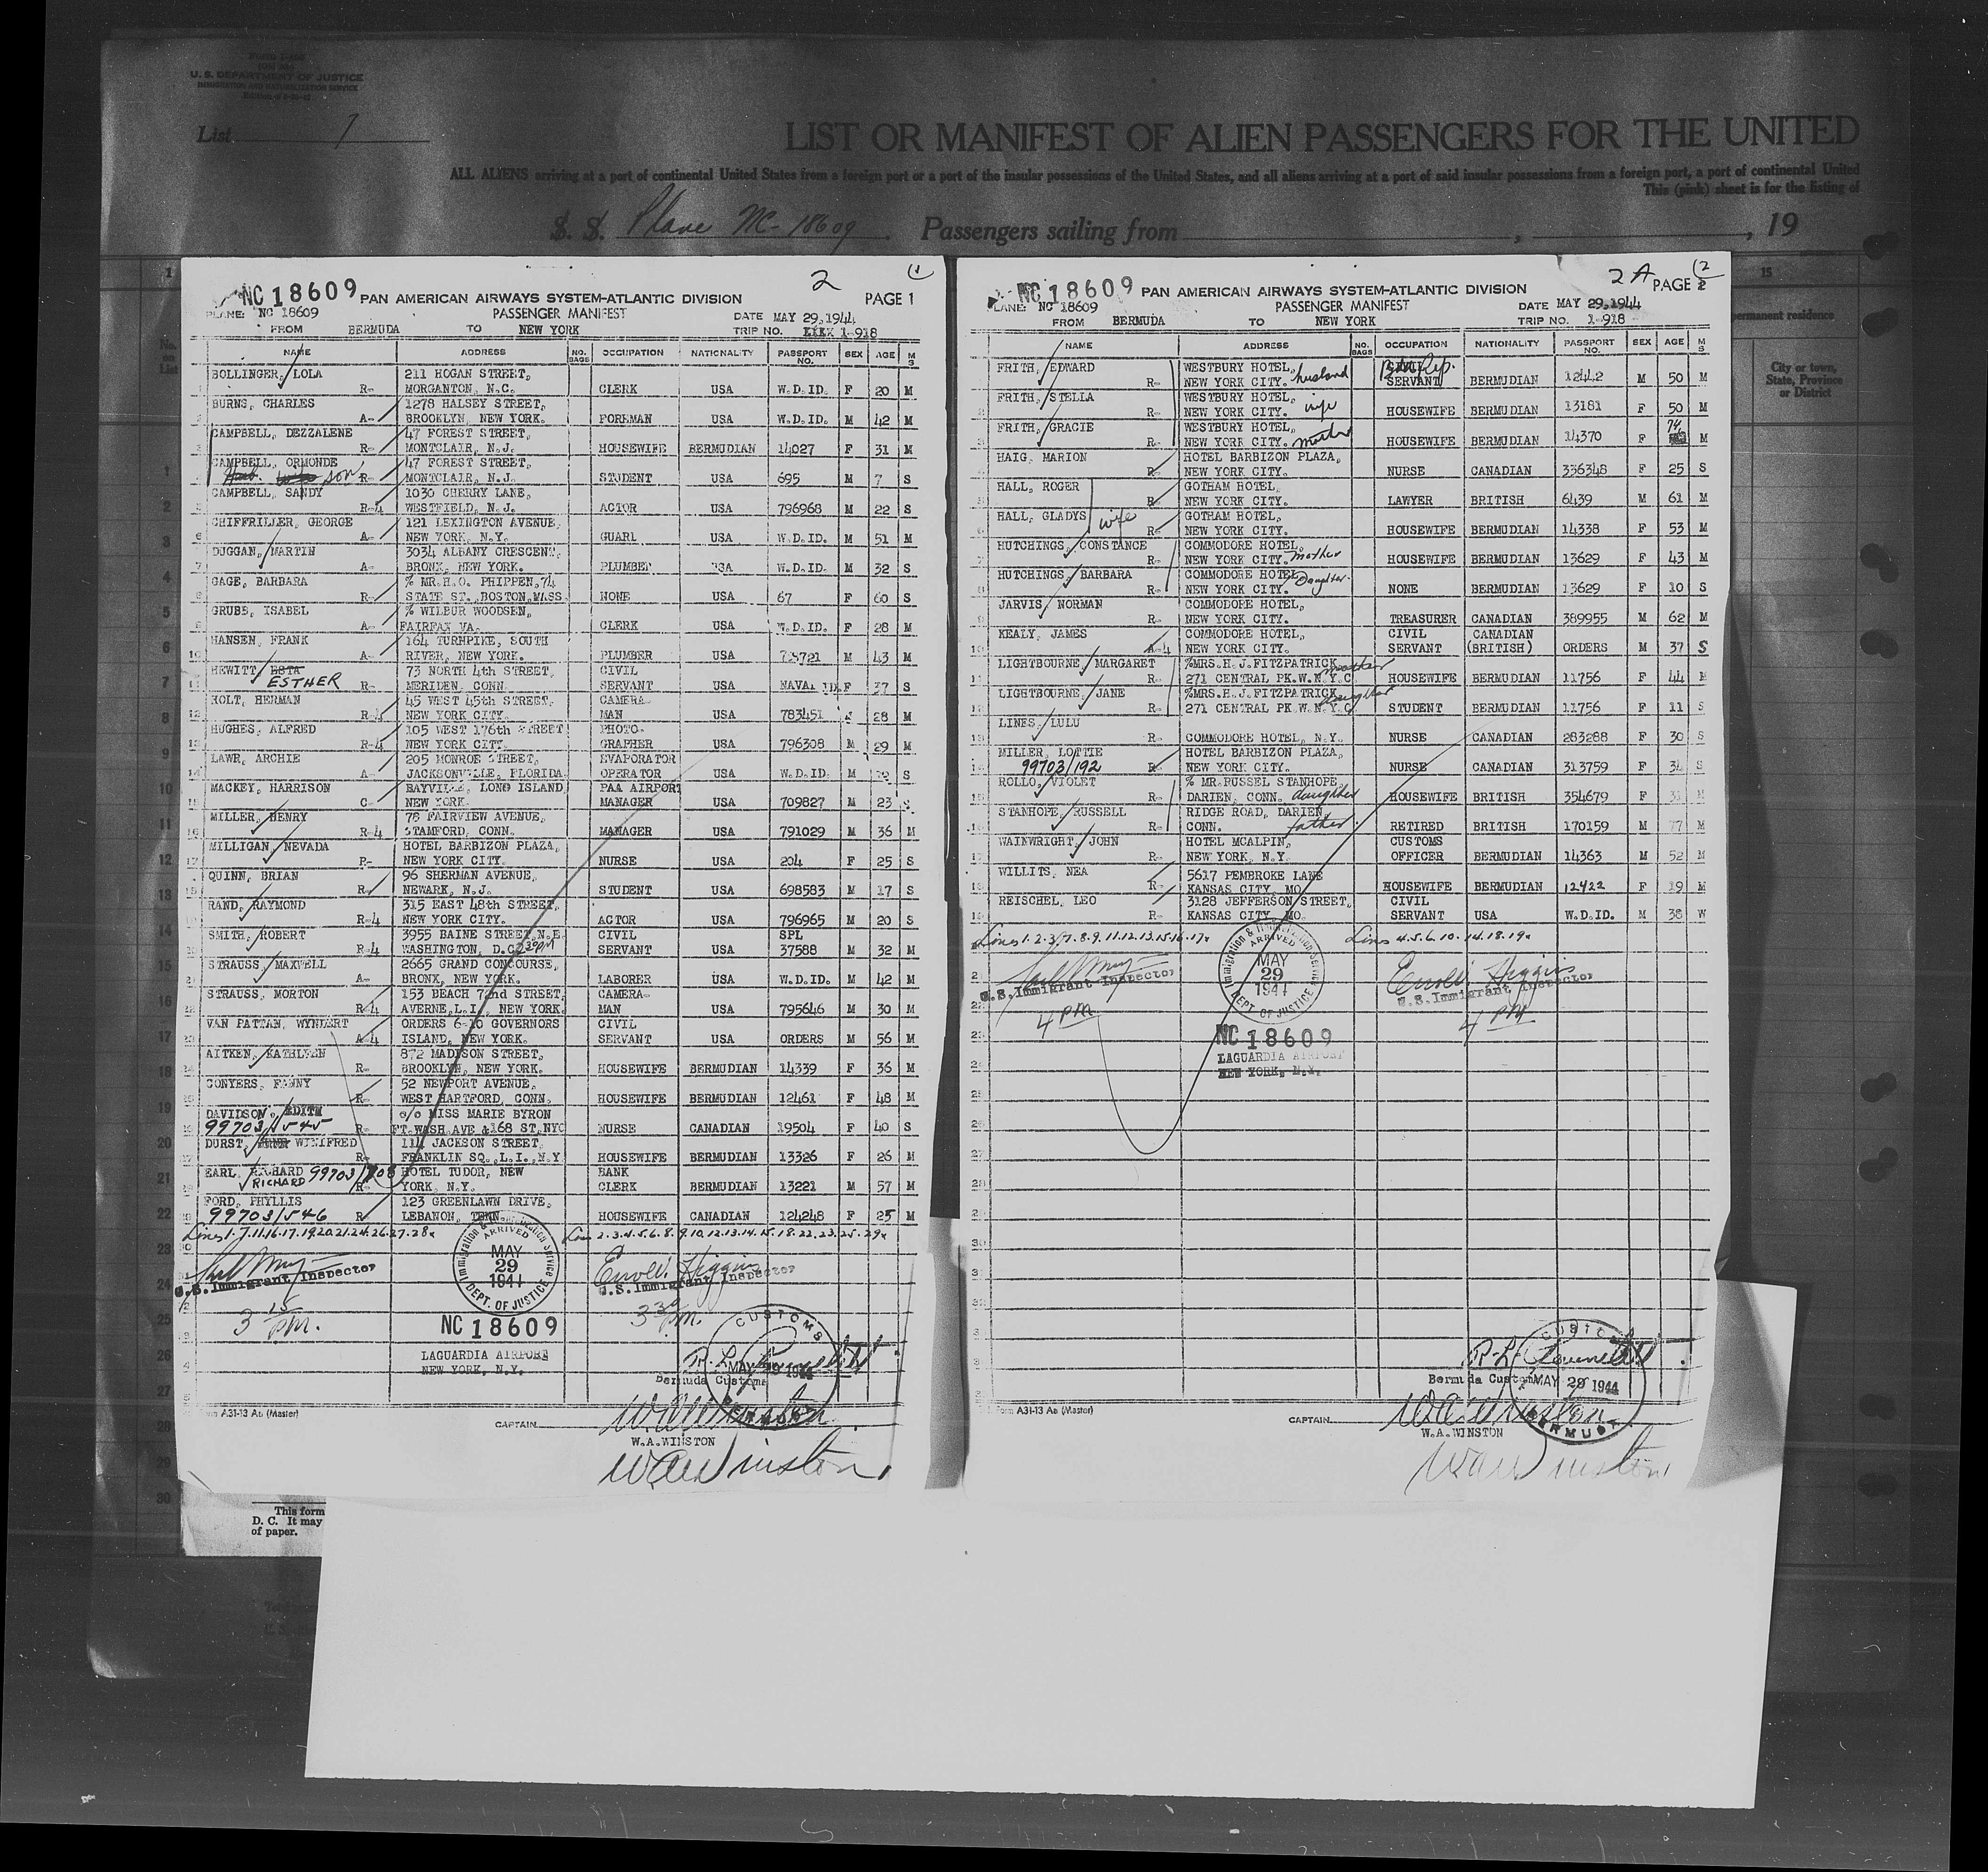 U. S. DEPARTMENT OF JUSTICE
IMMIGRATION AND NATURALIZATION SERVICE
List 1
LIST OR MANIFEST OF ALIEN PASSENGERS FOR THE UNITED
ALL ALIENS arriving at a port of continental United States from a foreign port or a port of the insular possessions of the United States, and all aliens arriving at a port of said insular possessions from a foreign port, a port of continental United
This (pink) sheet is for the listing of
S. S. Plane NC-18609. Passengers sailing from , , 19
NC 18609 PAN AMERICAN AIRWAYS SYSTEM-ATLANTIC DIVISION 2 PAGE 1
PLANE: NC 18609 PASSENGER MANIFEST DATE MAY 29, 1944
FROM BERMUDA TO NEW YORK TRIP NO. 1-918
NAME ADDRESS NO. BAGS OCCUPATION NATIONALITY PASSPORT NO. SEX AGE M S
BOLLINGER, LOLA 211 HOGAN STREET,
R- MORGANTON, N.C. CLERK USA W.D.ID. F 20 M
BURNS, CHARLES 1278 HALSEY STREET,
A- BROOKLYN, NEW YORK. FOREMAN USA W.D.ID. M 42 M
CAMPBELL, DEZZALENE 47 FOREST STREET,
R- MONTCLAIR, N.J. HOUSEWIFE BERMUDIAN 14027 F 31 M
CAMPBELL, ORMONDE 47 FOREST STREET,
son R- MONTCLAIR, N.J. STUDENT USA 695 M 7 S
CAMPBELL, SANDY 1030 CHERRY LANE,
R-4 WESTFIELD, N.J. ACTOR USA 796968 M 22 S
CHIFFRILLER, GEORGE 121 LEXINGTON AVENUE,
A- NEW YORK, N.Y. GUARD USA W.D.ID. M 51 M
DUGGAN, MARTIN 3034 ALBANY CRESCENT,
A- BRONX, NEW YORK. PLUMBER USA W.D.ID. M 32 S
GAGE, BARBARA % MR.H.O. PHIPPEN,74
R- STATE ST., BOSTON,MASS NONE USA 67 F 60 S
GRUBB, ISABEL % WILBUR WOODSEN,
A- FAIRFAX VA. CLERK USA W.D.ID. F 28 M
HANSEN, FRANK 164 TURNPIKE, SOUTH
A- RIVER, NEW YORK. PLUMBER USA M 43 M
HEWITT, ESTA 73 NORTH 4th STREET, CIVIL
ESTHER R- MERIDEN, CONN. SERVANT USA NAVAL ID F 37 S
HOLT, HERMAN 45 WEST 45th STREET, CAMERA-
R-4 NEW YORK CITY. MAN USA 783451 28 M
HUGHES, ALFRED 105 WEST 176th STREET PHOTO-
R-4 NEW YORK CITY. GRAPHER USA 796308 M 29 M
LAWR, ARCHIE 205 MONROE STREET, EVAPORATOR
A- JACKSONVILLE, FLORIDA. OPERATOR USA W.D.ID. M S
MACKEY, HARRISON BAYVILLE, LONG ISLAND PAA AIRPORT
C- NEW YORK. MANAGER USA 709827 M 23 S
MILLER, HENRY 78 FAIRVIEW AVENUE,
R-4 STAMFORD, CONN. MANAGER USA 791029 M 36 M
MILLIGAN, NEVADA HOTEL BARBIZON PLAZA,
R- NEW YORK CITY. NURSE USA 204 F 25 S
QUINN, BRIAN 96 SHERMAN AVENUE,
R- NEWARK, N.J. STUDENT USA 698583 M 17 S
RAND, RAYMOND 315 EAST 48th STREET,
R-4 NEW YORK CITY. ACTOR USA 796965 M 20 S
SMITH, ROBERT 3955 BAINE STREET,N.E. CIVIL SPL
R-4 WASHINGTON, D.C. 230PM SERVANT USA 37588 M 32 M
STRAUSS, MAXWELL 2665 GRAND CONCOURSE,
A- BRONX, NEW YORK. LABORER USA W.D.ID. M 42 M
STRAUSS, MORTON 153 BEACH 72nd STREET, CAMERA-
R-4 AVERNE,L.I., NEW YORK. MAN USA 795646 M 30 M
VAN PATTAN, WYNDERT ORDERS 6-10 GOVERNORS CIVIL
A-4 ISLAND, NEW YORK. SERVANT USA ORDERS M 56 M
AITKEN, KATHLEEN 872 MADISON STREET,
R- BROOKLYN, NEW YORK. HOUSEWIFE BERMUDIAN 14339 F 36 M
CONYERS, FANNY 52 NEWPORT AVENUE,
R- WEST HARTFORD, CONN. HOUSEWIFE BERMUDIAN 12461 F 48 M
DAVIDSON, EDITH c/o MISS MARIE BYRON
99703/1545 R- FT.WASH.AVE &168 ST.NYC NURSE CANADIAN 19504 F 40 S
DURST, WINIFRED 114 JACKSON STREET,
R- FRANKLIN SQ.,L.I.,N.Y HOUSEWIFE BERMUDIAN 13326 F 26 M
EARL, RICHARD 99703/1708 HOTEL TUDOR, NEW BANK
RICHARD R- YORK, N.Y. CLERK BERMUDIAN 13221 M 57 M
FORD, PHYLLIS 123 GREENLAWN DRIVE,
99703/1546 R- LEBANON, TENN. HOUSEWIFE CANADIAN 124248 F 25 M
Lines 1.7.11.16.17.19.20.21.24.26.27.28 Lines 2.3.4.5.6.8.9.10.12.13.14.15.18.22.23.25.29
U.S. Immigrant Inspector
3 15 pm.
Immigration & Naturalization Service
ARRIVED
MAY
29
1944
DEPT. OF JUSTICE
Errol Higgins
U.S. Immigrant Inspector
3 30 pm.
NC 18609
LAGUARDIA AIRPORT
NEW YORK, N.Y.
CUSTOMS
MAY 29 1944
BERMUDA
Bermuda Customs
Form A31-13 Aa (Master)
CAPTAIN W.A. Winston
W.A.WINSTON
W.A. Winston
NC 18609 PAN AMERICAN AIRWAYS SYSTEM-ATLANTIC DIVISION 2A PAGE 2
PLANE: NC 18609 PASSENGER MANIFEST DATE MAY 29, 1944
FROM BERMUDA TO NEW YORK TRIP NO. 1-918
NAME ADDRESS NO. BAGS OCCUPATION NATIONALITY PASSPORT NO. SEX AGE M S
FRITH, EDWARD WESTBURY HOTEL, Rep.
R- NEW YORK CITY. husband SERVANT BERMUDIAN 12442 M 50 M
FRITH, STELLA WESTBURY HOTEL,
R- NEW YORK CITY. wife HOUSEWIFE BERMUDIAN 13181 F 50 M
FRITH, GRACIE WESTBURY HOTEL, 74
R- NEW YORK CITY. mother HOUSEWIFE BERMUDIAN 14370 F M
HAIG, MARION HOTEL BARBIZON PLAZA,
R- NEW YORK CITY. NURSE CANADIAN 336348 F 25 S
HALL, ROGER GOTHAM HOTEL,
R- NEW YORK CITY. LAWYER BRITISH 6439 M 61 M
HALL, GLADYS wife GOTHAM HOTEL,
R- NEW YORK CITY. HOUSEWIFE BERMUDIAN 14338 F 53 M
HUTCHINGS, CONSTANCE COMMODORE HOTEL,
R- NEW YORK CITY. mother HOUSEWIFE BERMUDIAN 13629 F 43 M
HUTCHINGS, BARBARA COMMODORE HOTEL Daughter.
R- NEW YORK CITY. NONE BERMUDIAN 13629 F 10 S
JARVIS, NORMAN COMMODORE HOTEL,
R- NEW YORK CITY. TREASURER CANADIAN 389955 M 62 M
KEALY, JAMES COMMODORE HOTEL, CIVIL CANADIAN
A-4 NEW YORK CITY. SERVANT (BRITISH) ORDERS M 37 S
LIGHTBOURNE, MARGARET %MRS.H.J.FITZPATRICK, mother
R- 271 CENTRAL PK.W.N.Y.C HOUSEWIFE BERMUDIAN 11756 F 44 M
LIGHTBOURNE, JANE %MRS.H.J.FITZPATRICK, daughter
R- 271 CENTRAL PK.W.N.Y.C STUDENT BERMUDIAN 11756 F 11 S
LINES, LULU
R- COMMODORE HOTEL, N.Y. NURSE CANADIAN 283288 F 30 S
MILLER, LOTTIE HOTEL BARBIZON PLAZA,
99703/192 R- NEW YORK CITY. NURSE CANADIAN 313759 F 34 S
ROLLO, VIOLET % MR.RUSSEL STANHOPE,
R- DARIEN, CONN. daughter HOUSEWIFE BRITISH 354679 F M
STANHOPE, RUSSELL RIDGE ROAD, DARIEN,
R- CONN. father. RETIRED BRITISH 170159 M 77 M
WAINWRIGHT, JOHN HOTEL MCALPIN, CUSTOMS
R- NEW YORK, N.Y. OFFICER BERMUDIAN 14363 M 52 M
WILLITS, NEA 5617 PEMBROKE LANE
R- KANSAS CITY, MO. HOUSEWIFE BERMUDIAN 12422 F 19 M
REISCHEL, LEO 3128 JEFFERSON STREET, CIVIL
R- KANSAS CITY, MO. SERVANT USA W.D.ID. M 38 W
Lines 1.2.3.7.8.9.11.12.13.15.16.17 Lines 4.5.6.10.14.18.19
U.S. Immigrant Inspector
4 PM
Immigration & Naturalization Service
ARRIVED
MAY
29
1944
DEPT. OF JUSTICE
Errol Higgins
U.S. Immigrant Inspector
4 PM
NC 18609
LAGUARDIA AIRPORT
NEW YORK, N.Y.
CUSTOMS
Bermuda Customs MAY 29 1944
BERMUDA
Form A31-13 Aa (Master)
CAPTAIN W.A. Winston
W.A.WINSTON
W.A. Winston
15
permanent residence
City or town,
State, Province
or District
This form
D. C. It may
of paper.